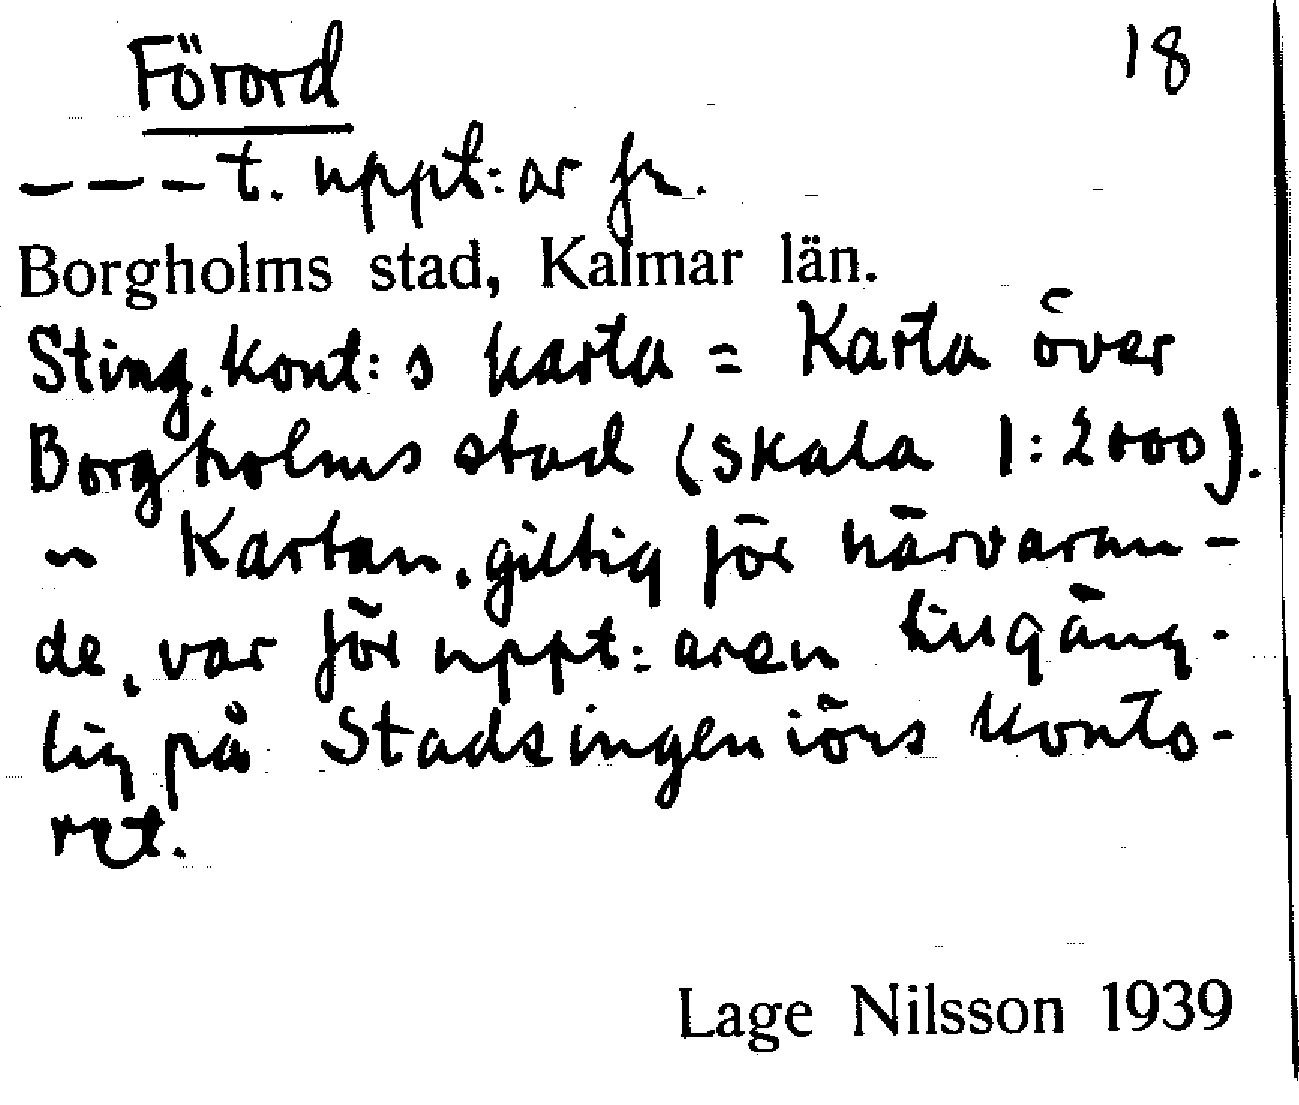 Förord 18
– – – t. uppt:ar fr.
Borgholms stad, Kalmar län.
Sting.kont:s karta = Karta över
Borgholms stad (skala 1:2000).
~ Kartan, giltig för närvaran-
de, var för uppt:aren tillgäng-
lig på Stadsingeniörs konto-
ret.
Lage Nilsson 1939